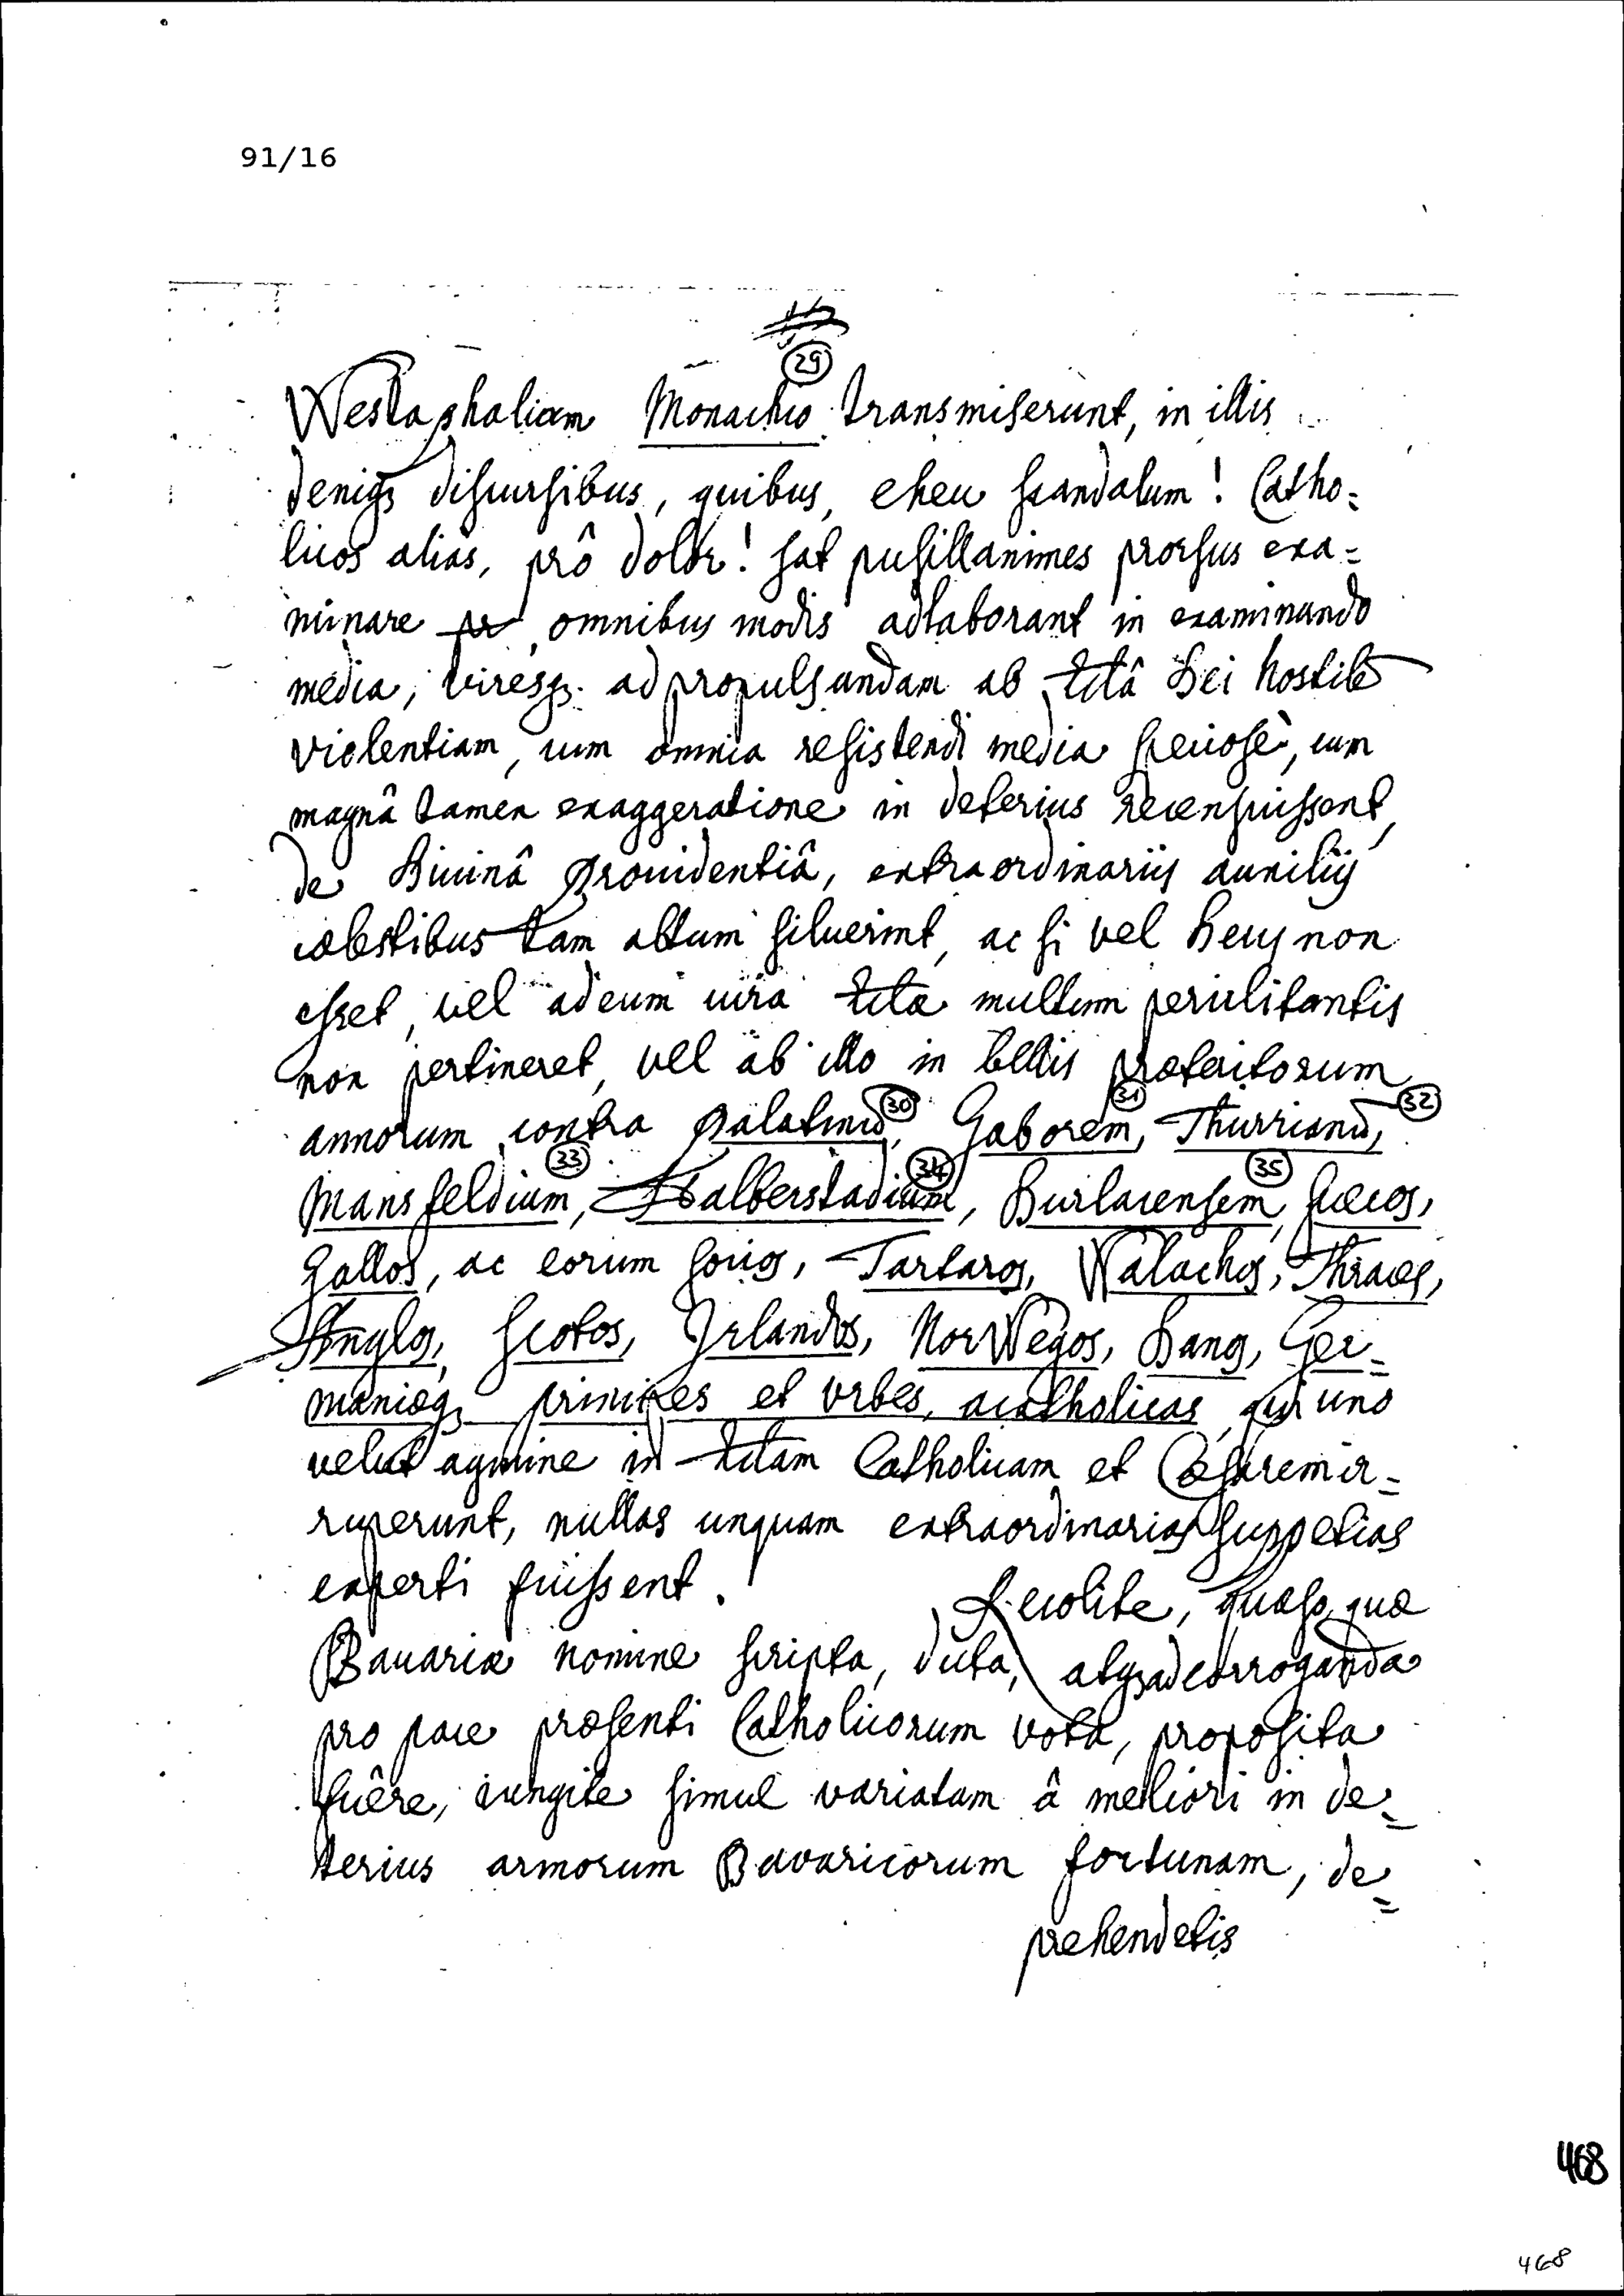 91/16
29
Westaphaliam Monachio transmiserunt, in illis
deniq; discursibus, quibus, eheu scandalum! Catho=
licos alias, prô dolor! sat pusillanimes prorsus exa=
minare omnibus modis adlaborant in examinando
media, viresq; ad propulsandam ab Eccltâ Dei hostilē
violentiam, cum omnia resistendi media speciosè, cum
magnâ tamen exaggeratione in deterius recensuissent,
de Diuinâ Prouidentiâ, extraordinariis auxiliis
cœlestibus tam altum siluerint, ac si vel Deus non
esset, vel ad eum cura multum periclitantis
non pertineret, vel ab illo in bellis præteritorum
30 31 32
annorum contra Palatinū, Gaborem, Thurrianū,
33 34 35
Mansfeldium, Halberstadium, Durlacensem, Suecos,
Gallos, ac eorum socios, Tartaros, Walachos, Thraces,
Anglos, Scotos, Irlandos, NorWegos, Danos, Ger=
maniæq; principes et vrbes, acatholicas, qui uno
velut agmine in Catholicam et Cæsarem ir=
ruperunt, nullas unquam extraordinarias suppetias
experti fuissent. Recolite, quæso, quæ
Bauariæ nomine scripta, dicta, atq; ad corroganda
pro pace præsenti Catholicorum vota, proposita
fuêre, iungite simul variatam â meliori in de=
terius armorum Bavaricorum fortunam, de=
prehendetis
468
468